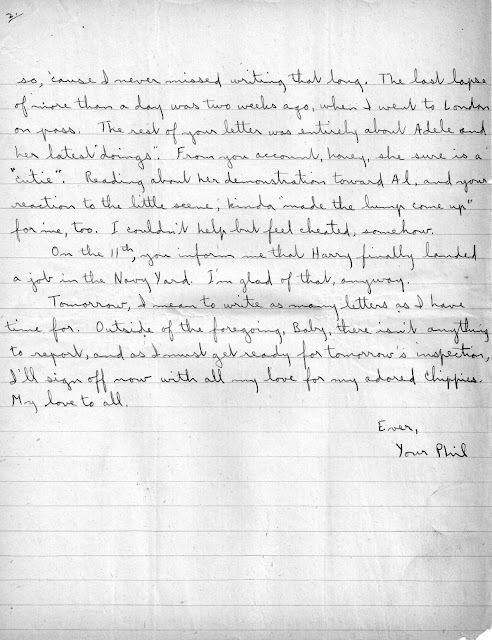 2.
so, 'cause I never missed writing that long. The last lapse
of more than a day was two weeks ago, when I went to London
on pass. The rest of your letter was entirely about Adele and
her latest "doings". From you account, honey, she sure is a
"cutie". Reading about her demonstration toward Al, and your
reaction to the little scene, kinda "made the lump come up"
for me, too. I couldn't help but feel cheated, somehow.
On the 11th, you inform me that Harry finally landed
a job in the Navy Yard. I'm glad of that, anyway.
Tomorrow, I mean to write as many letters as I have
time for. Outside of the foregoing, Baby, there isn't anything
to report, and as I must get ready for tomorrow's inspection,
I'll sign off now with all my love for my adored Chippies.
My love to all.
Ever,
Your Phil